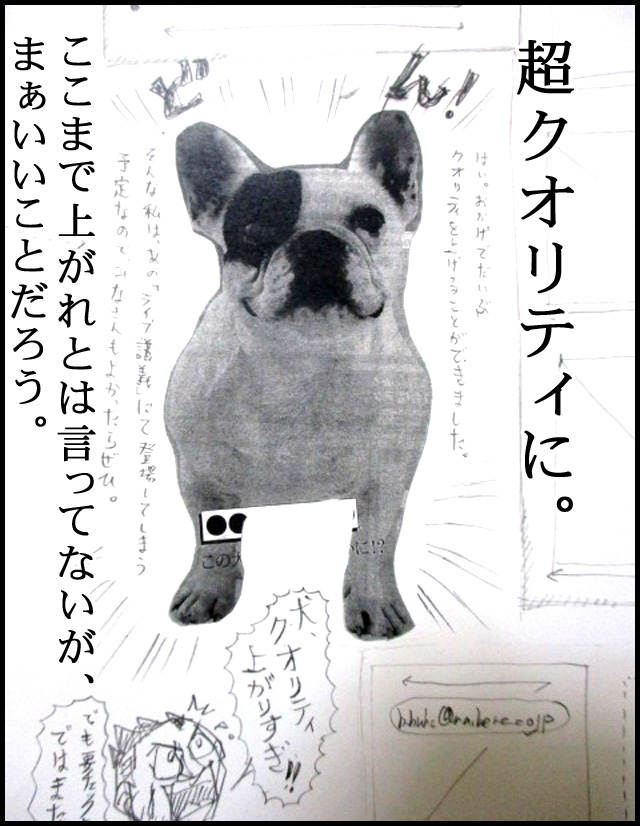 超クオリティに。
どん!
はい。おかげでだいぶ
クオリティを上げることができました。
そんな私は、あの「ライブ講義」にて登場してしまう
予定なので、みなさんもよかったらぜひ。
●●
この
に!?
犬、
クオリティ
上がりすぎ!!
でも
ではまた
ここまで上がれとは言ってないが、
まぁいいことだろう。